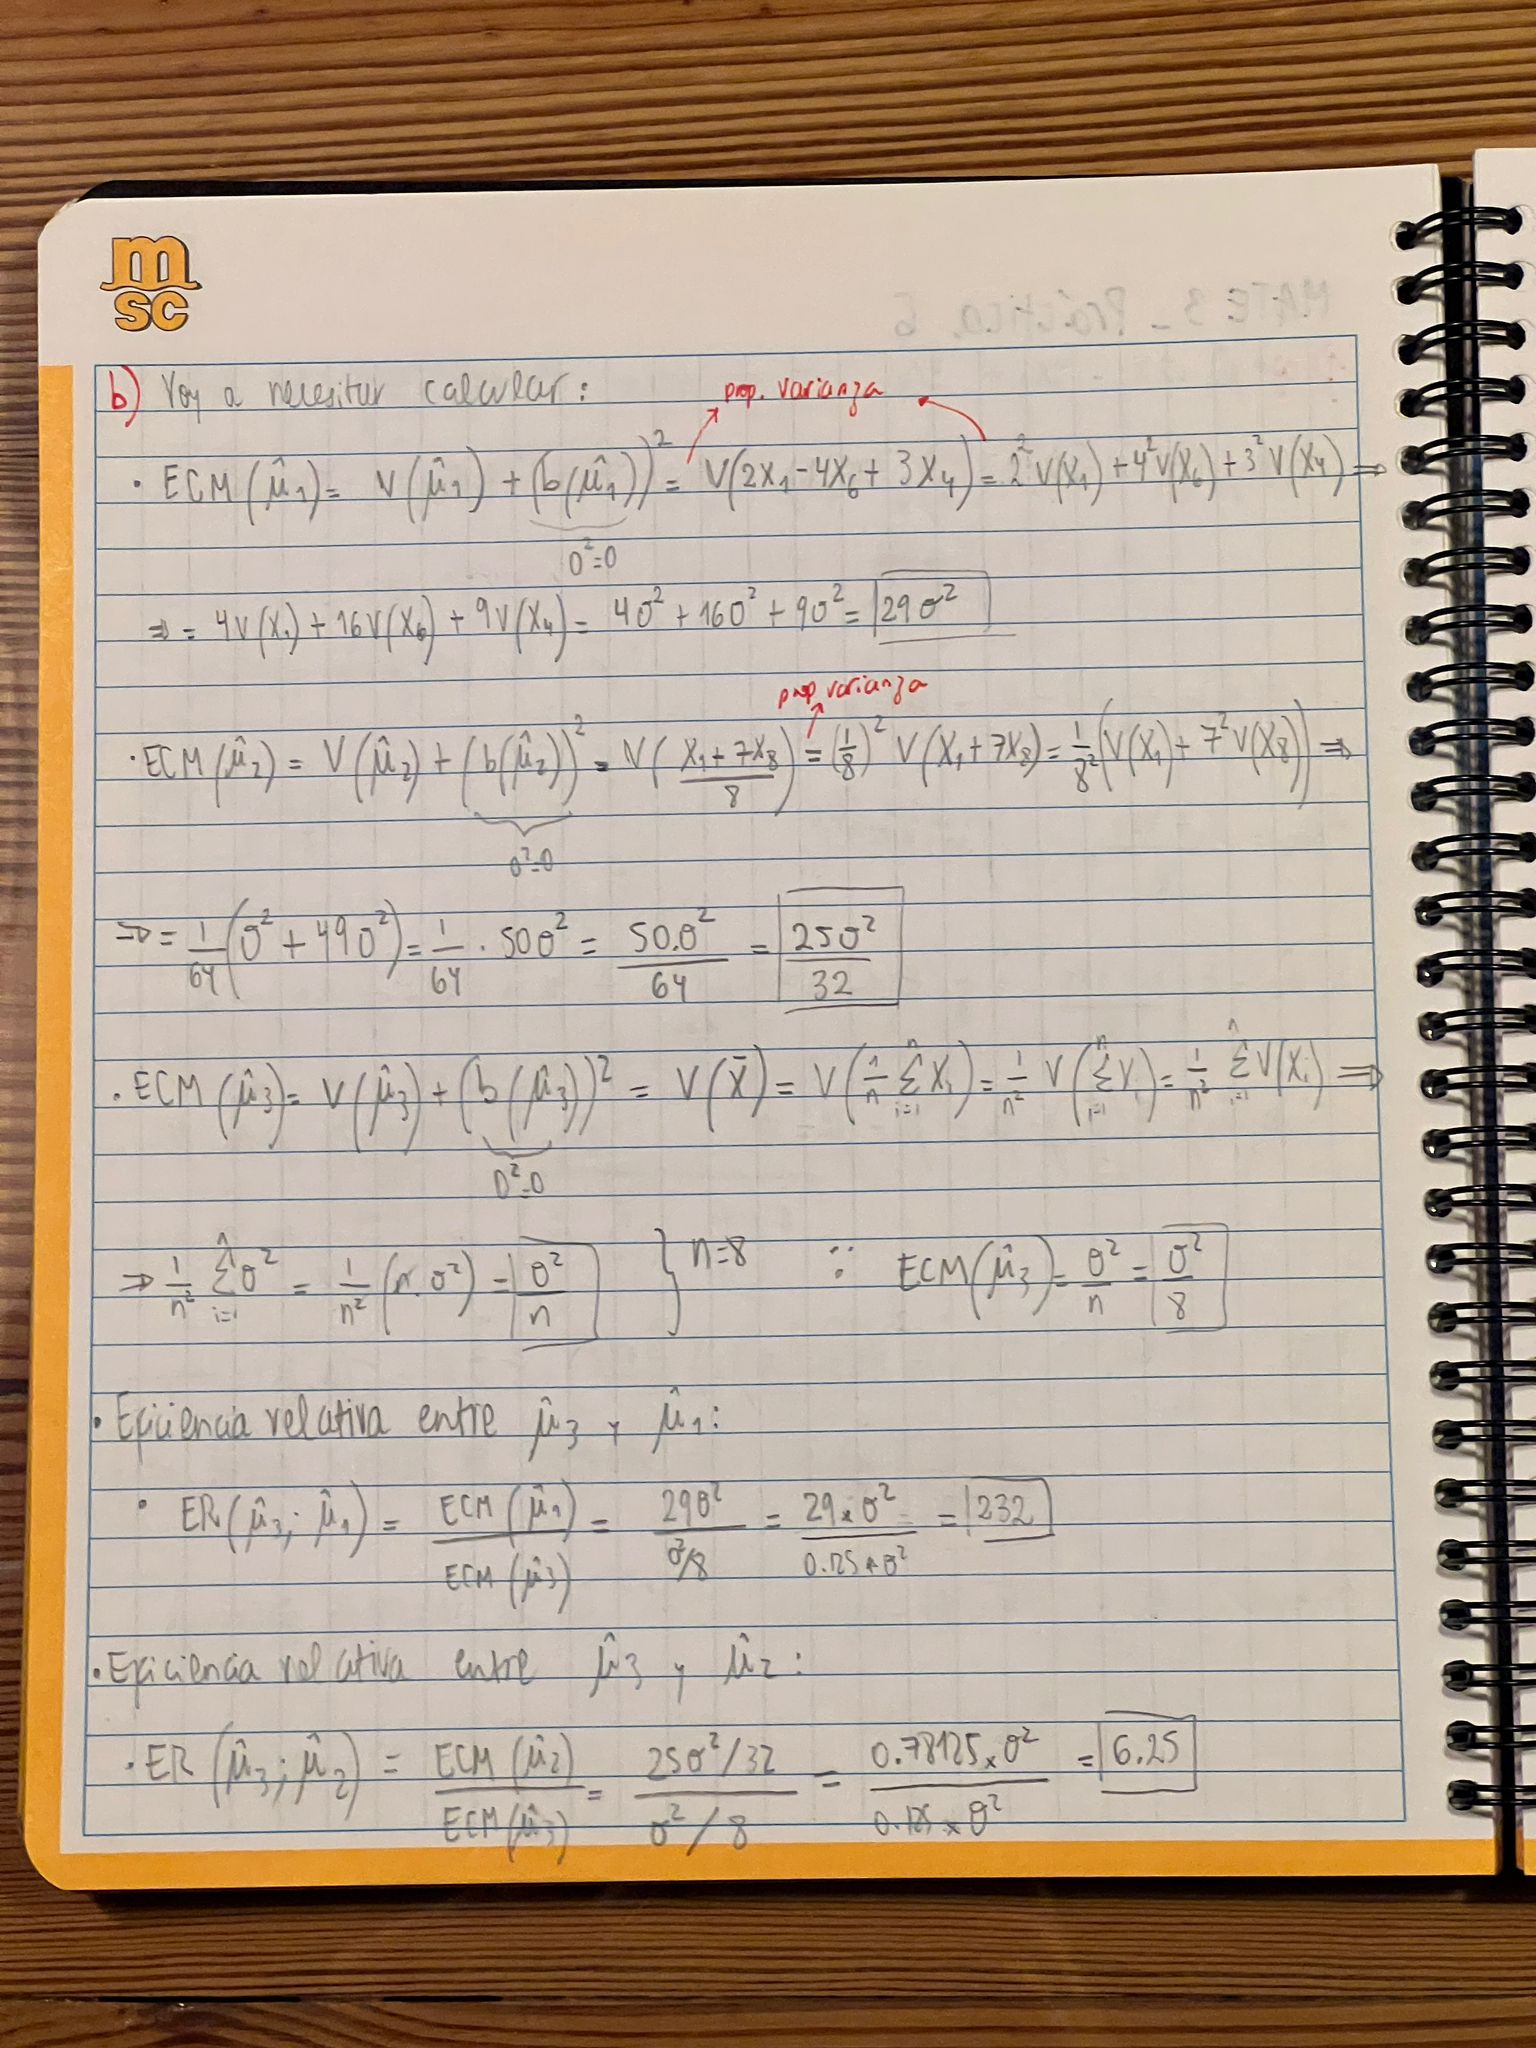 msc
MATE 3 - Práctica 5
b) Voy a necesitar calcular:
prop. varianza
· ECM(μ̂₁) = V(μ̂₁) + (b(μ̂₁))² = V(2X₁ - 4X₆ + 3X₄) = 2² V(X₁) + 4² V(X₆) + 3² V(X₄) ⇒
0² = 0
⇒ = 4V(X₁) + 16V(X₆) + 9V(X₄) = 4σ² + 16σ² + 9σ² = 29σ²
prop varianza
· ECM(μ̂₂) = V(μ̂₂) + (b(μ̂₂))² = V((X₁ + 7X₈)/8) = (1/8)² V(X₁ + 7X₈) = 1/8² (V(X₁) + 7² V(X₈)) ⇒
0² = 0
⇒ = 1/64 (σ² + 49σ²) = 1/64 · 50σ² = 50.σ²/64 = 25σ²/32
· ECM(μ̂₃) = V(μ̂₃) + (b(μ̂₃))² = V(X̄) = V(1/n Σⁿᵢ₌₁ Xᵢ) = 1/n² V(Σⁿᵢ₌₁ Xᵢ) = 1/n² Σⁿᵢ₌₁ V(Xᵢ) ⇒
0² = 0
⇒ 1/n² Σⁿᵢ₌₁ σ² = 1/n² (n.σ²) = σ²/n } n=8 ∵ ECM(μ̂₃) = σ²/n = σ²/8
· Eficiencia relativa entre μ̂₃ y μ̂₁:
· ER(μ̂₃; μ̂₁) = ECM(μ̂₁)/ECM(μ̂₃) = 29σ²/σ²/8 = 29×σ²/0.125×σ² = 232
· Eficiencia relativa entre μ̂₃ y μ̂₂:
· ER(μ̂₃; μ̂₂) = ECM(μ̂₂)/ECM(μ̂₃) = 25σ²/32/σ²/8 = 0.78125×σ²/0.125×σ² = 6.25